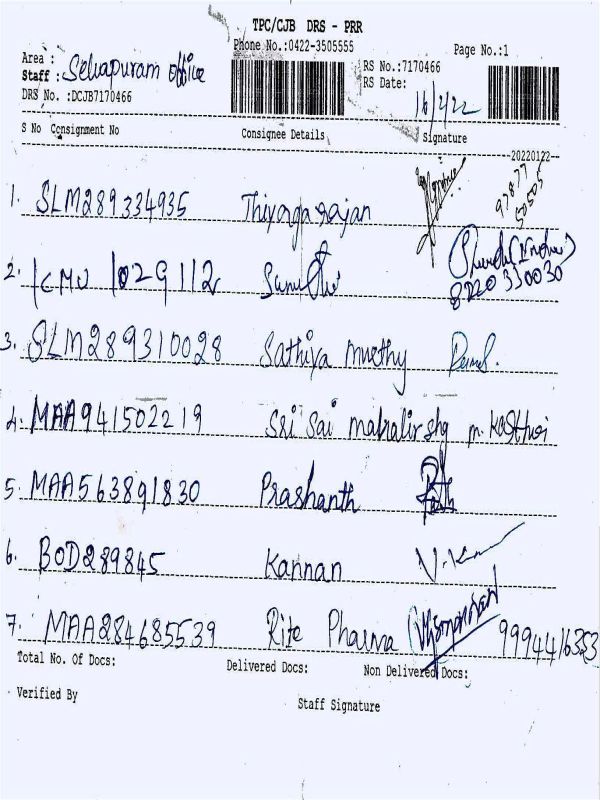 TPC/CJB DRS - PRR
Phone No.:0422-3505555
Page No.:1
Area :
Staff : Selvapuram office
DRS No. :DCJB7170466
RS No.:7170466
RS Date:
16/4/22
S No Consignment No Consignee Details Signature
20220122
1. SLM289334935 Thiyagarajan 97877 50505
2. KMU 1029112 8220 330030
3. SLM289310028 Sathiya Murthy
4. MAA941502219 Sri Sai m. Kasthuri
5. MAA563891830 Prashanth
6. BOD289845 Kannan
7. MAA284685539 Rite Pharma 9994416353
Total No. Of Docs: Delivered Docs: Non Delivered Docs:
Verified By Staff Signature